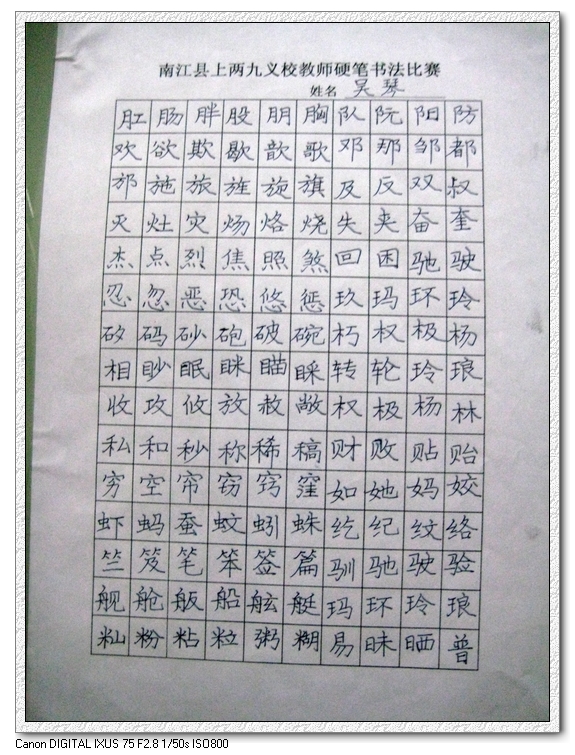 南江县上两九义校教师硬笔书法比赛
姓名 吴琴
肛肠胖股朋胸队阮阳防
欢欲欺歇歆歌邓那邹都
邡施旅旌旋旗及反双叔
灭灶灾炀烙烧失夹奋奎
杰点烈焦照煞回困驰驶
忍忽恶恐悠惩玖玛环玲
矽码砂砲破碗朽权极杨
相眇眠眯瞄睬转轮玲琅
收攻攸放赦敞权极杨林
私和秒称稀稿财败贴贻
穷空帘窃窍窪如她妈姣
虾蚂蚕蚊蚓蛛纥纪纹络
竺笈笔笨签篇驯驰驶验
舰舱舨船舷艇玛环玲琅
籼粉粘粒粥糊易昧晒普
Canon DIGITAL IXUS 75 F2.8 1/50s ISO800